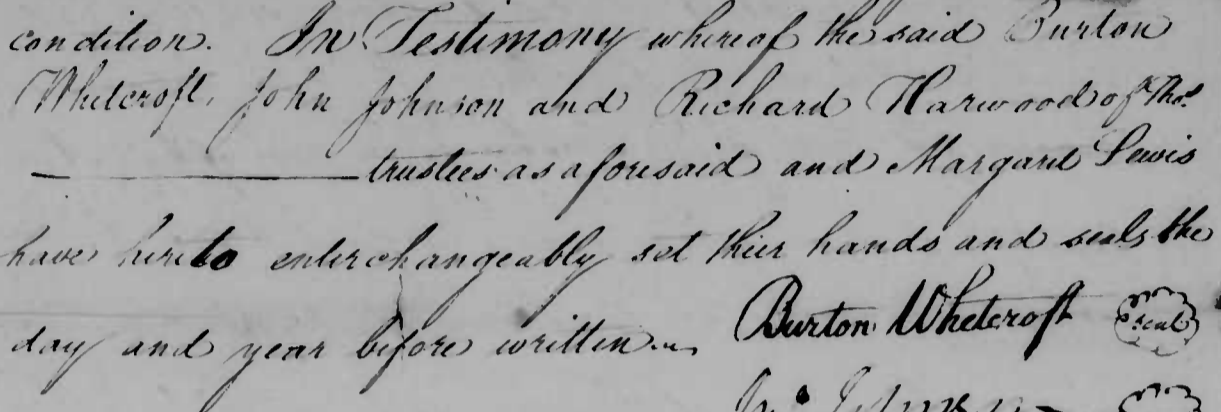 condition. In Testimony whereof the said Burton
Whetcroft, John Johnson and Richard Harwood of Thos.
trustees as aforesaid and Margaret Lewis
have hereto enterchangeably set thier hands and seals the
day and year before written.
Burton Whetcroft seal